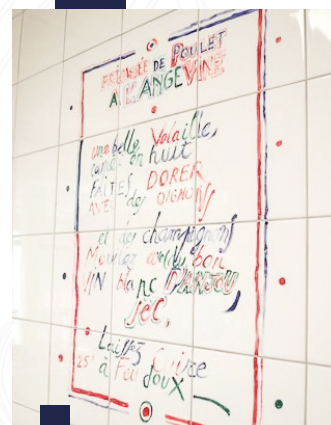 FRICASSÉE DE POULET
A L'ANGEVINE
une belle Volaille,
coupée en huit
FAITES DORER
AVEC des OIGNONS
et des champignons
Mouillez avec du bon
VIN blanc D'ANJOU
SEC,
Laissez Cuire
25' à Feu doux